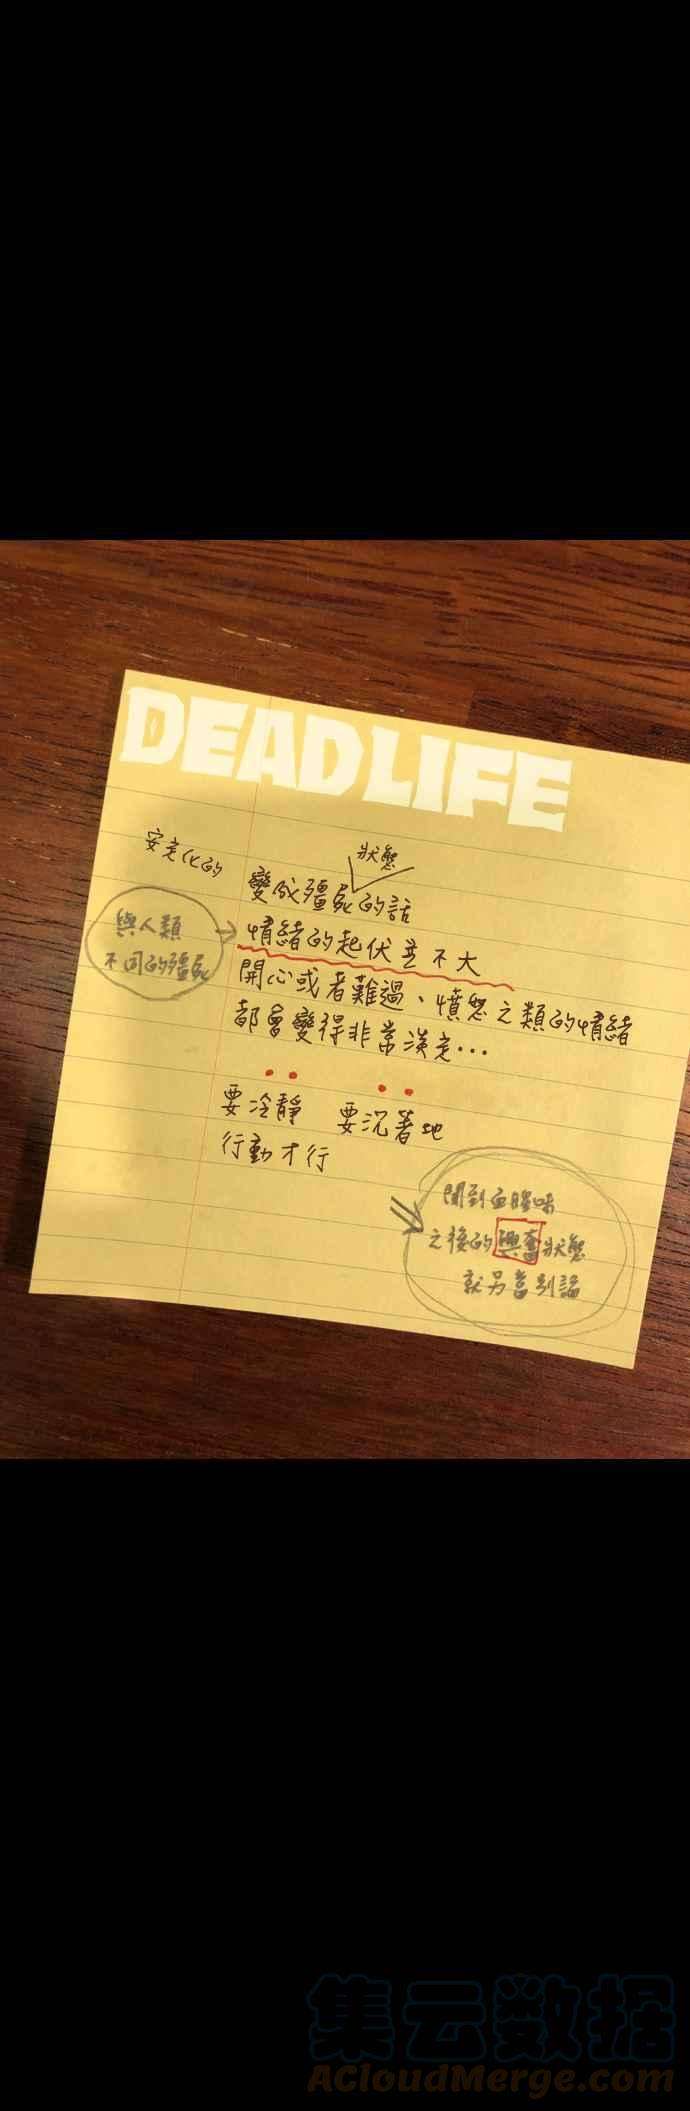 DEAD LIFE
安定化的
狀態
變成殭屍的話
與人類
不同的殭屍
情緒的起伏並不大
開心或者難過、憤怒之類的情緒
都會變得非常淡定…
要冷靜 要沉著地
行動才行
聞到血腥味
之後的興奮狀態
就另當別論
集云数据
ACloudMerge.com